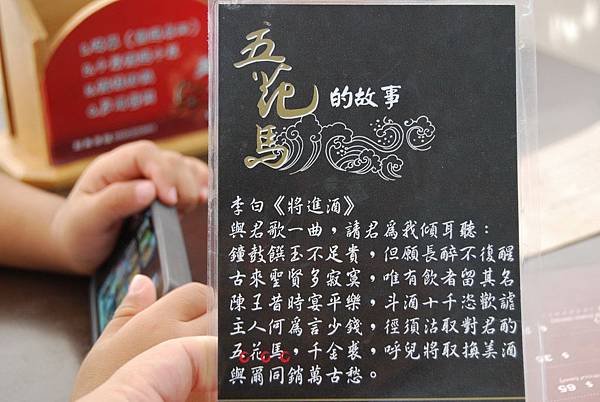 五花馬
的故事
李白《將進酒》
與君歌一曲，請君為我傾耳聽：
鐘鼓饌玉不足貴，但願長醉不復醒
古來聖賢多寂寞，唯有飲者留其名
陳王昔時宴平樂，斗酒十千恣歡謔
主人何為言少錢，徑須沽取對君酌
五花馬，千金裘，呼兒將取換美酒
與爾同銷萬古愁。
$ 65